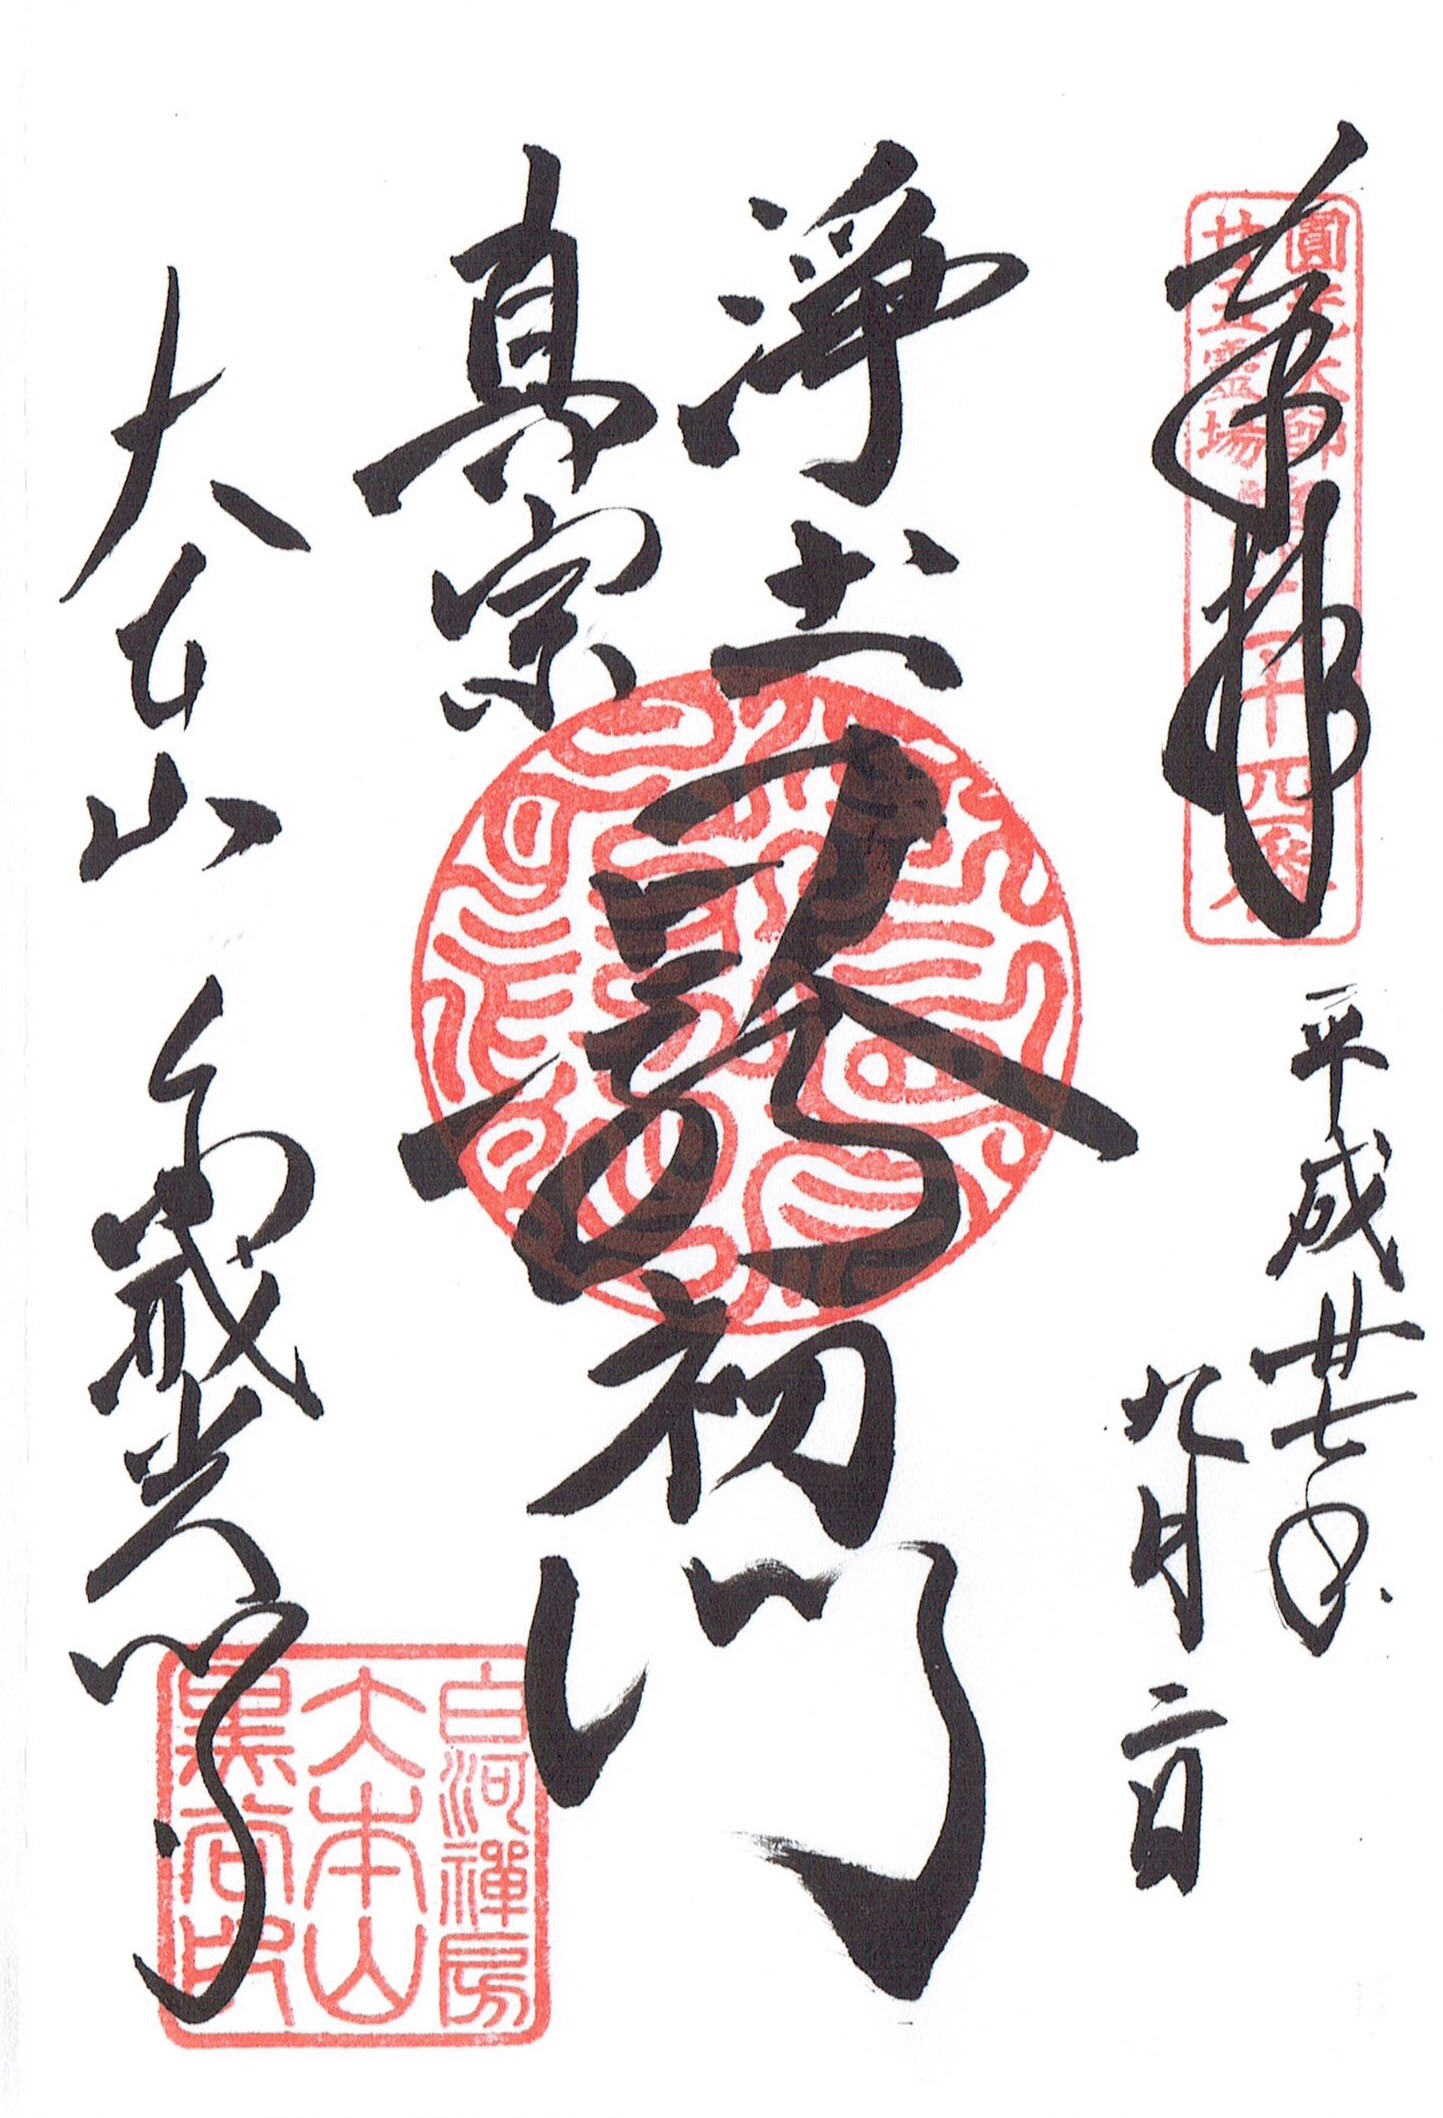 奉拝
圓光大師
廿五霊場
二十四番
平成廿七年
九月二日
浄土
真宗
最初門
大本山 金戒光明寺
白河禅房
大本山
黒谷